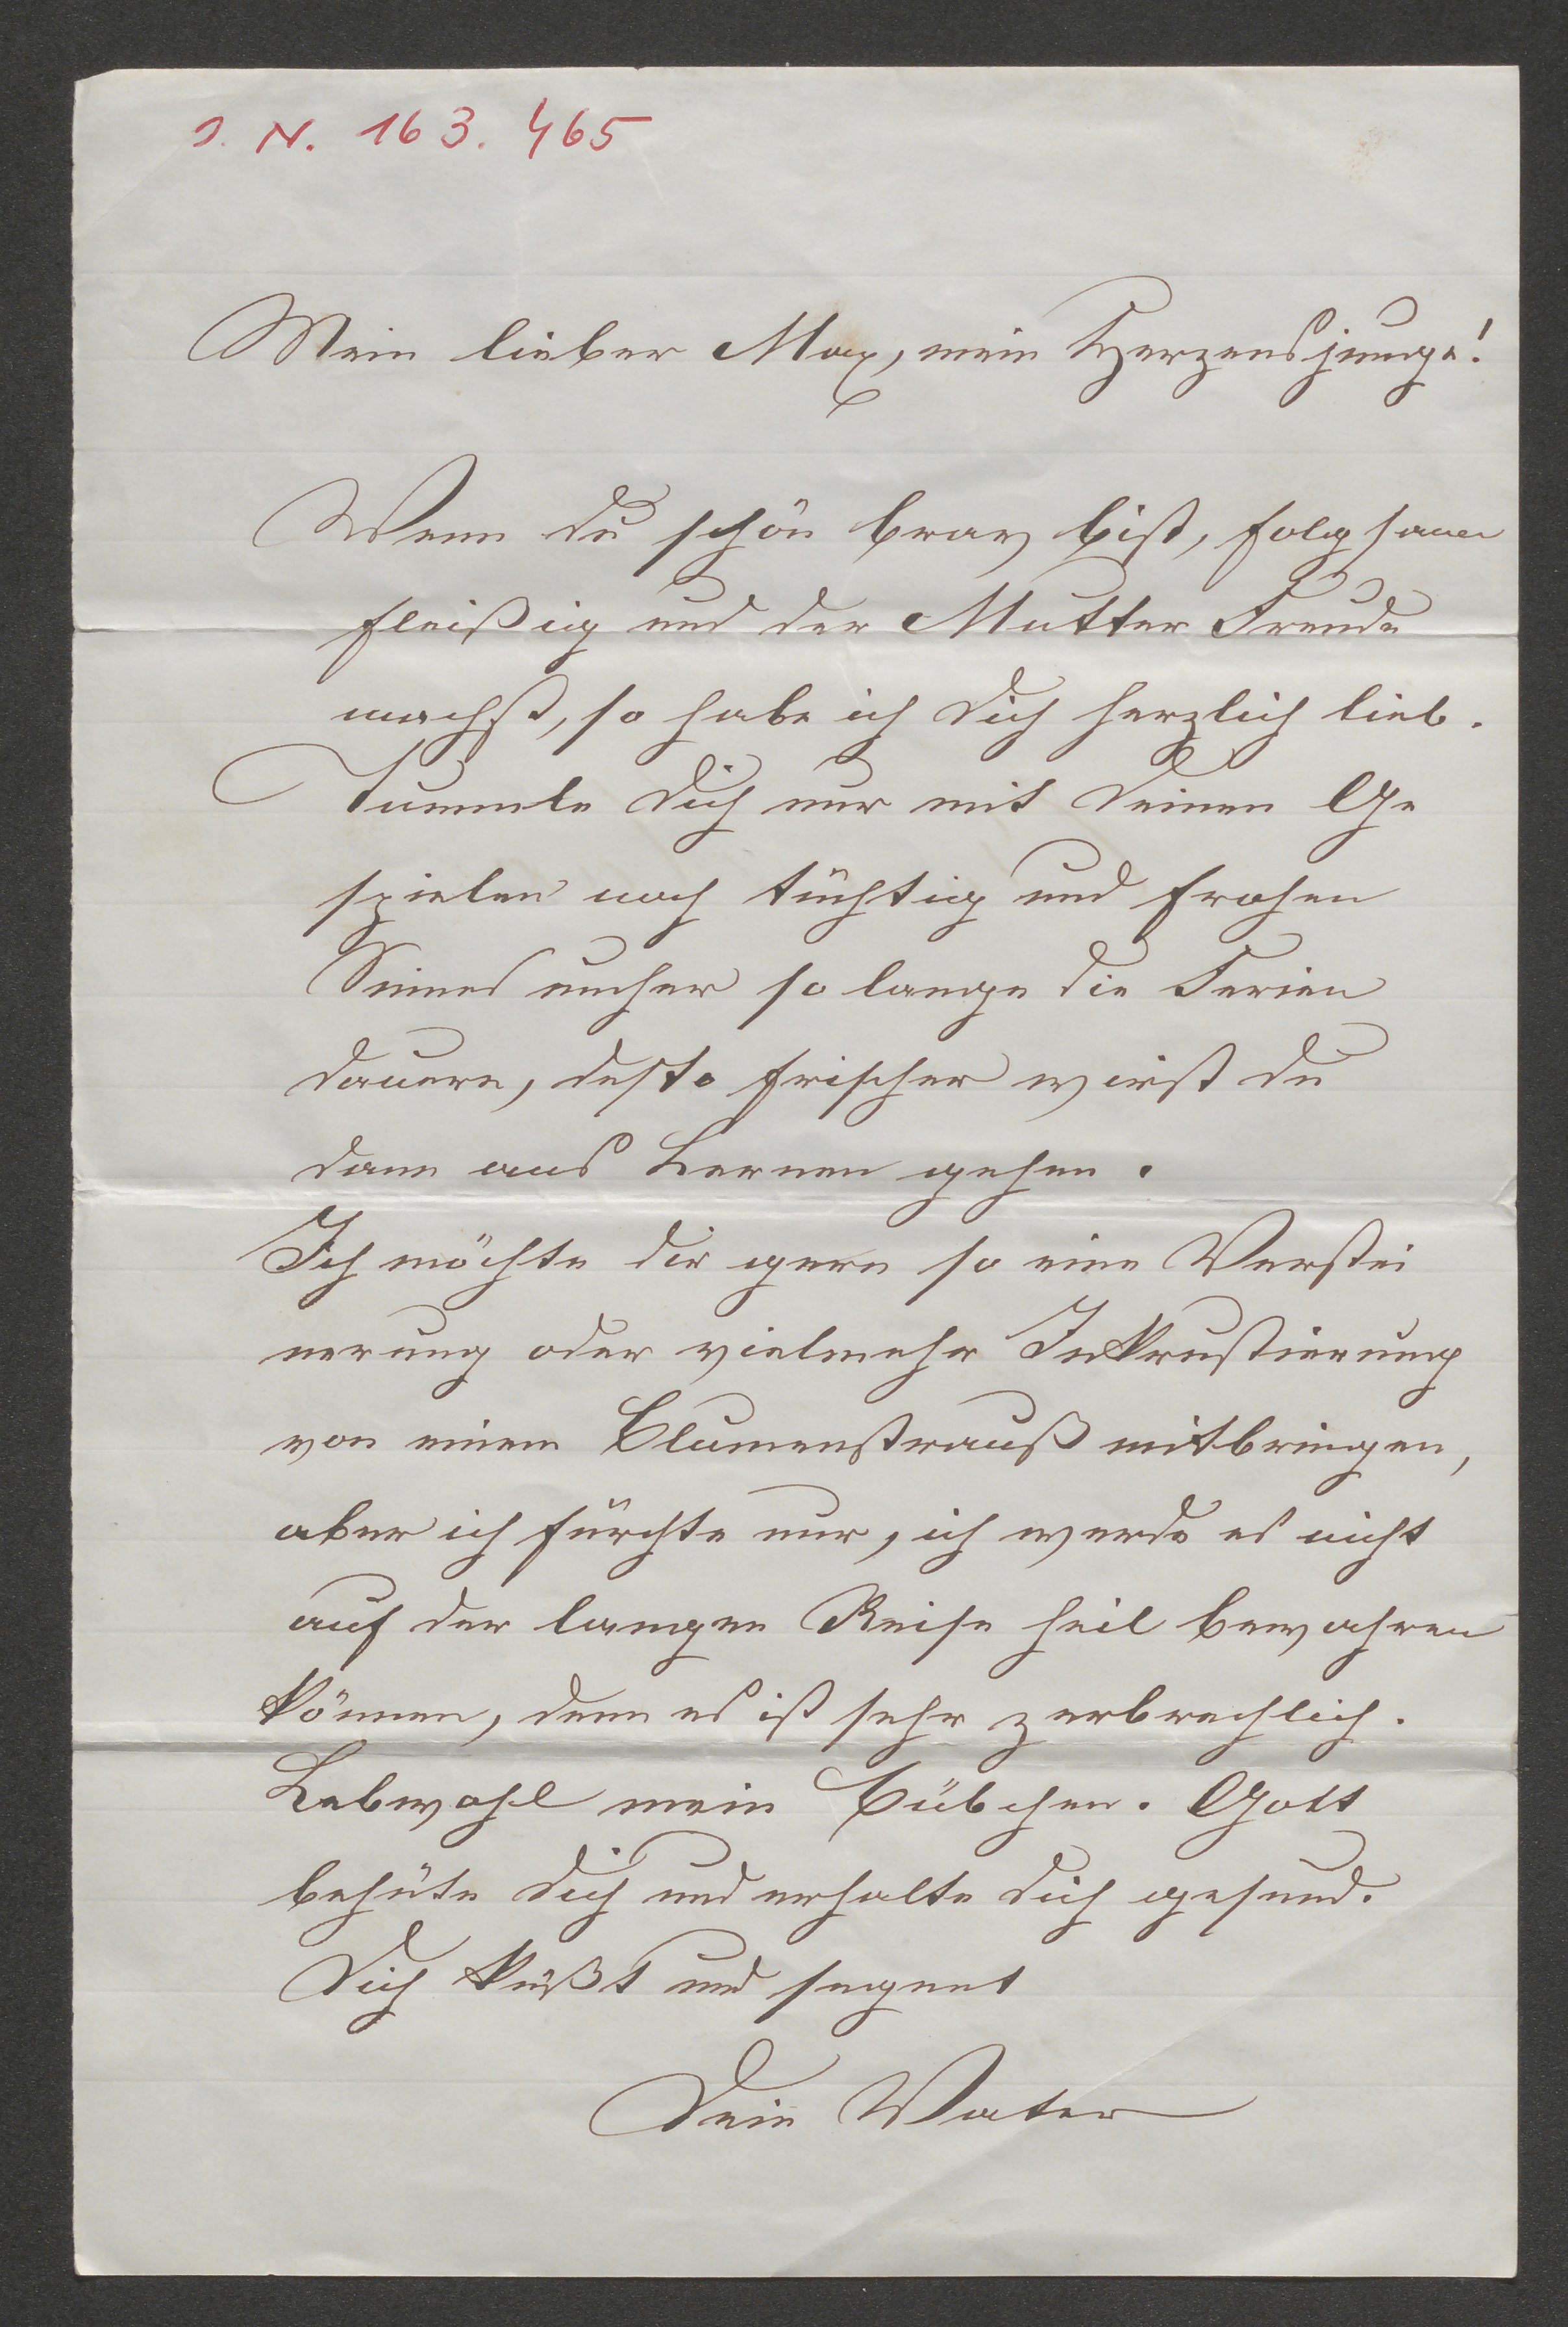 J. N. 163.465
Mein lieber Max, mein Herzensjunge!
Wenn du schön brav bist, folgsam
fleißig und der Mutter Freude
machst, so habe ich dich herzlich lieb.
Tummle dich nur mit deinen Ge
spielen noch tüchtig und frohen
Sinnes umher so lange die Ferien
dauern, desto frischer wirst du
dann ans Lernen gehen.
Ich möchte dir gern so eine Verstei
nerung oder vielmehr Inkrustierung
von einem Blumenstrauß mitbringen,
aber ich fürchte nur, ich werde es nicht
auf der langen Reise heil bewahren
können, denn es ist sehr zerbrechlich.
Lebwohl mein Bübchen. Gott
behüte dich und erhalte dich gesund.
Dich küßt und segnet
Dein Vater